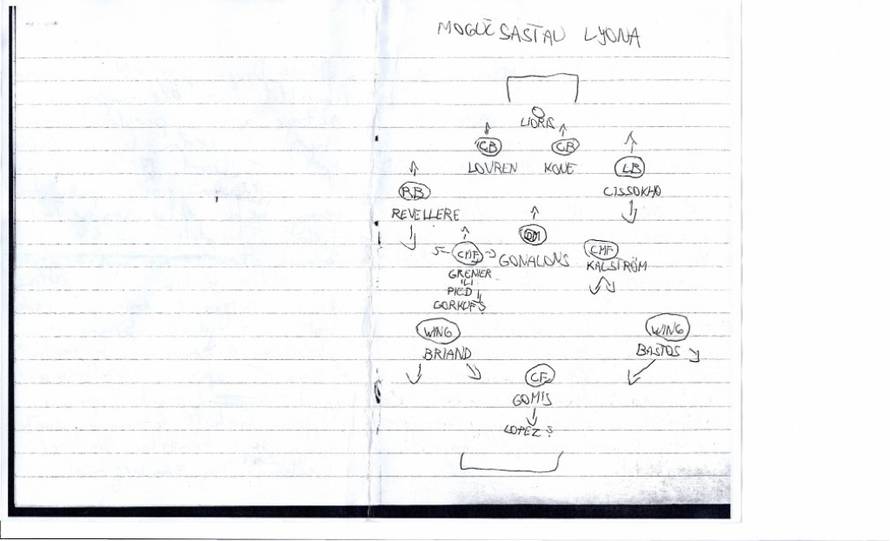 MOGUĆ SASTAV LYONA
LLORIS
CB CB
LOVREN KONE
LB
CISSOKHO
RB
REVELLERE
DM
GONALONS
CMF
GRENIER
ILI
PIED
GORKUF?
CMF
KALSTRÖM
WING
BRIAND
WING
BASTOS
CF
GOMIS
LOPEZ?